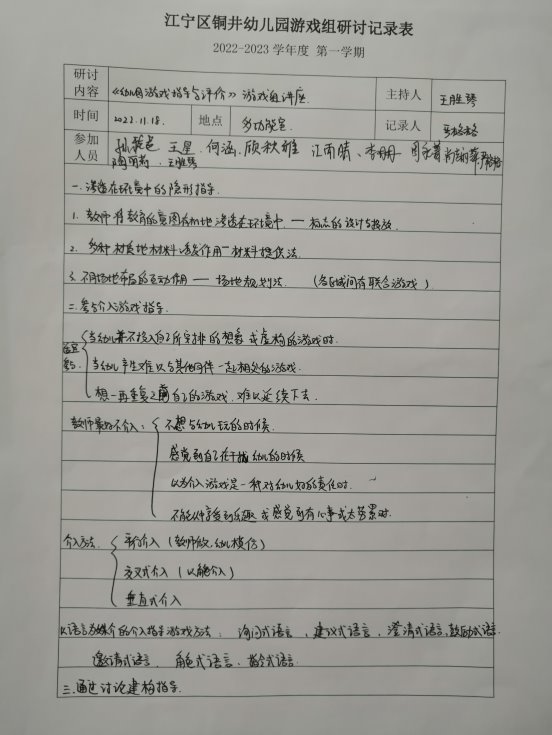 江宁区铜井幼儿园游戏组研讨记录表
2022-2023 学年度 第一学期
研讨内容 《幼儿园游戏指导与评价》游戏组讲座. 主持人 王胜琴
时间 2022.11.18. 地点 多功能室. 记录人
参加人员 王星、何涵、顾秋雄 江雨晴、李玥
陶丽莉、王胜琴
一.渗透在环境中的隐形指导.
1. 教师将教育的意图有机地渗透在环境中. — 标志的设计与投放.
2. 多种材质地材料诱发作用—材料提供法.
3. 不同场地布局的互动作用 —— 场地规划法. (各区域间有联合游戏)
二.参与介入游戏指导.
当幼儿并不投入自己所安排的想象或虚构的游戏时.
参与. 当幼儿产生难以与其他同伴一起相处的游戏.
想一再重复之前自己的游戏.难以延续下去.
教师最好不介入: 不想与幼儿玩的时候.
感觉到自己在干扰幼儿的时候
以为介入游戏是一种对幼儿好的责任时.
不能从中享受到乐趣或感觉到有心事或太劳累时.
介入方法. 平行介入 (教师做.幼儿模仿)
交叉式介入 (以能介入)
垂直式介入
以语言为媒介的介入指导游戏方法: 询问式语言、建议式语言、澄清式语言.鼓励式语言.
邀请式语言、角色式语言、指令式语言.
三.通过讨论建构指导.